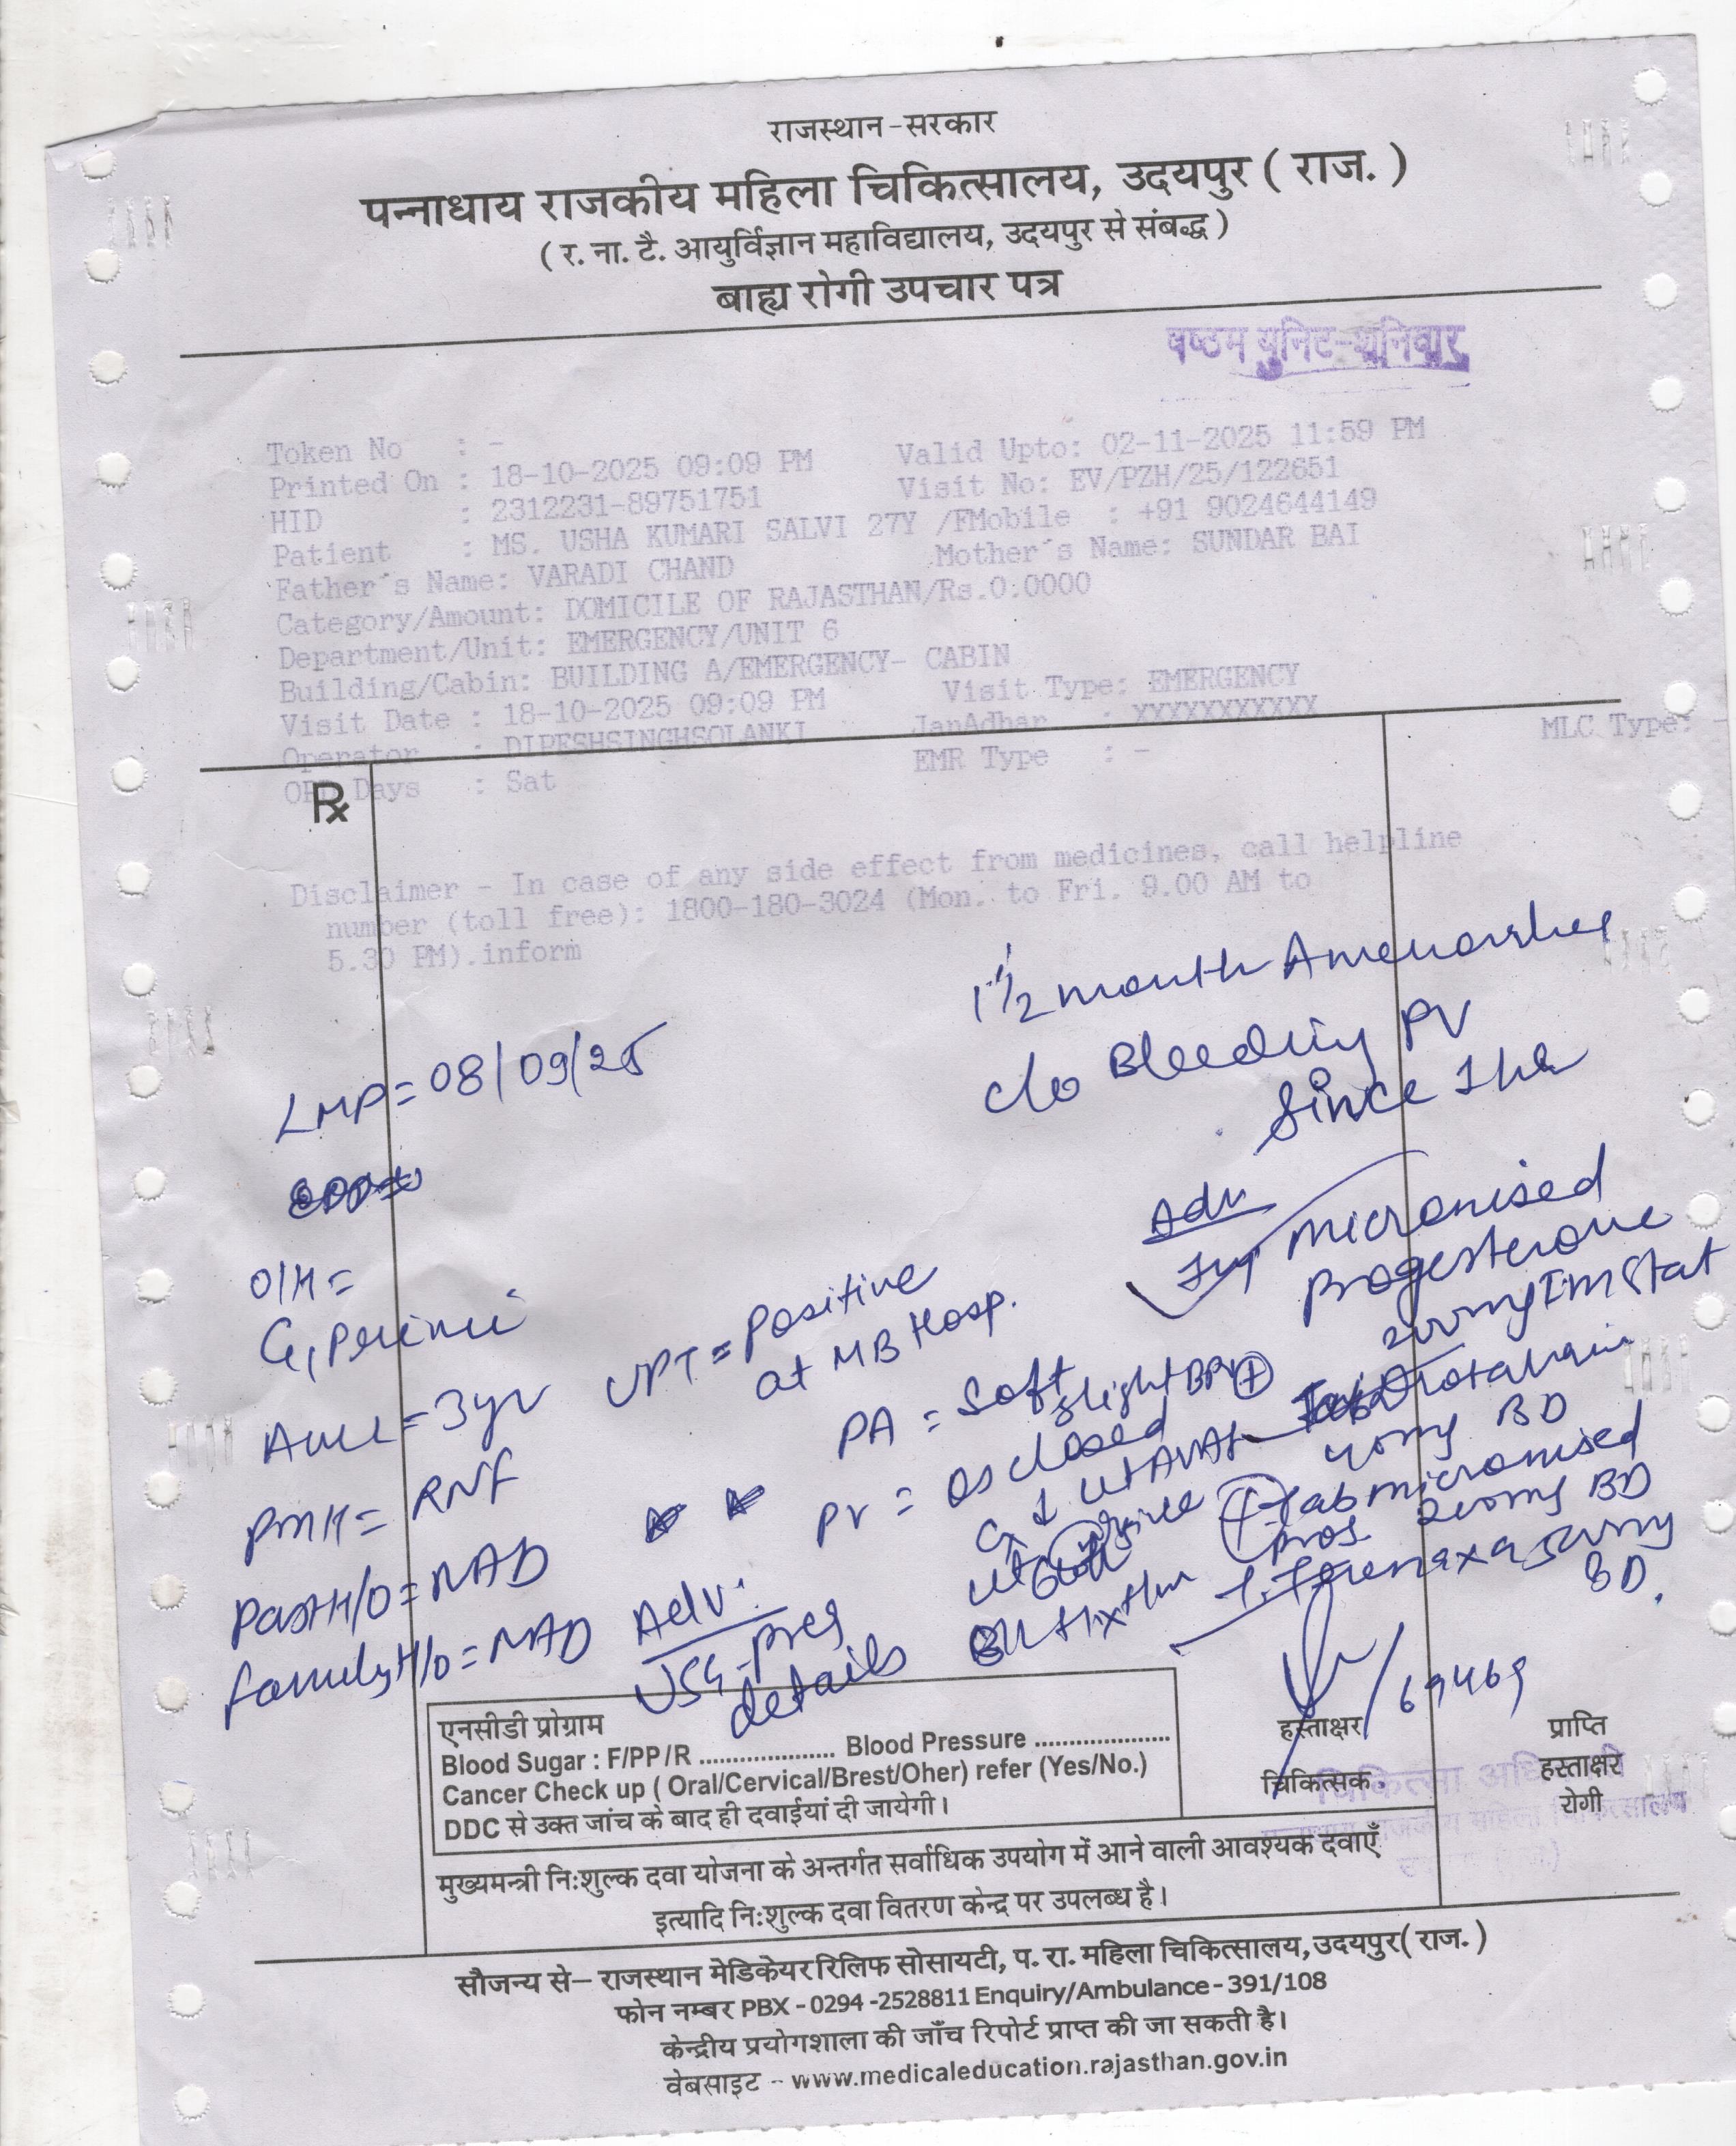 राजस्थान-सरकार
पन्नाधाय राजकीय महिला चिकित्सालय, उदयपुर ( राज. )
( र. ना. टै. आयुर्विज्ञान महाविद्यालय, उदयपुर से संबद्ध )
बाह्य रोगी उपचार पत्र
षष्ठम युनिट-शनिवार
Token No : -
Valid Upto: 02-11-2025 11:59 PM
Printed On : 18-10-2025 09:09 PM
Visit No: EV/PZH/25/122651
HID : 2312231-89751751
Patient : MS. USHA KUMARI SALVI 27Y /FMobile : +91 9024644149
Father´s Name: VARADI CHAND
Mother´s Name: SUNDAR BAI
Category/Amount: DOMICILE OF RAJASTHAN/Rs.0.0000
Department/Unit: EMERGENCY/UNIT 6
Building/Cabin: BUILDING A/EMERGENCY- CABIN
Visit Date : 18-10-2025 09:09 PM
Visit Type: EMERGENCY
Operator : DIPESHSINGHSOLANKI
JanAdhar : XXXXXXXXXXX
MLC Type: -
OPD Days : Sat
EMR Type : -
Rx
Disclaimer - In case of any side effect from medicines, call helpline
number (toll free): 1800-180-3024 (Mon. to Fri. 9.00 AM to
5.30 PM).inform
1 1/2 month Amenorrhea
c/o Bleeding PV
Since 1 hr
LMP = 08/09/25
O/H =
G1 Primi
AML = 3yr
PMH = RNF
Past H/O = NAD
Family H/O = NAD
UPT = Positive
at MB Hosp.
PA = Soft
PV = OS closed
slight BPV (+)
Cx ↓ ut AVAF
Adv:
USG - preg
details
Adv
Inj Micronised
Progesterone
200mg IM Stat
Tab Drotaverin
40mg BD
Tab micronised
prog. 200mg BD
T. Trenaxa 500mg
BD.
/69469
एनसीडी प्रोग्राम
Blood Sugar : F/PP/R .................... Blood Pressure ....................
Cancer Check up ( Oral/Cervical/Brest/Oher) refer (Yes/No.)
DDC से उक्त जांच के बाद ही दवाईयां दी जायेगी।
हस्ताक्षर
चिकित्सक
प्राप्ति
हस्ताक्षर
रोगी
चिकित्सा
राजकीय महिला चिकित्सालय
मुख्यमन्त्री निःशुल्क दवा योजना के अन्तर्गत सर्वाधिक उपयोग में आने वाली आवश्यक दवाएँ
इत्यादि निःशुल्क दवा वितरण केन्द्र पर उपलब्ध है।
सौजन्य से– राजस्थान मेडिकेयर रिलिफ सोसायटी, प. रा. महिला चिकित्सालय, उदयपुर( राज. )
फोन नम्बर PBX - 0294 -2528811 Enquiry/Ambulance - 391/108
केन्द्रीय प्रयोगशाला की जाँच रिपोर्ट प्राप्त की जा सकती है।
वेबसाइट -- www.medicaleducation.rajasthan.gov.in